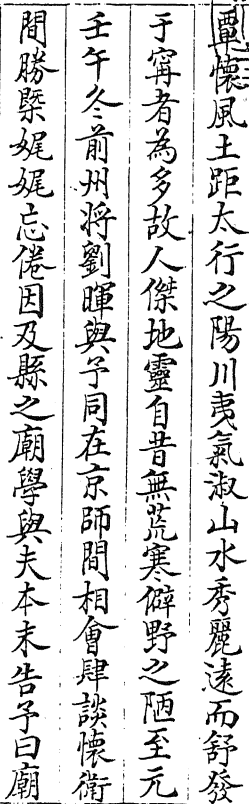 覃懷風土距太行之陽川夷氣淑山水秀麗遠而舒發
于甯者為多故人傑地靈自昔無荒寒僻野之陋至元
壬午冬前州将劉暉與予同在京師間相會肆談懷衛
間勝槩娓娓忘倦因及縣之廟學與夫本末告予曰廟